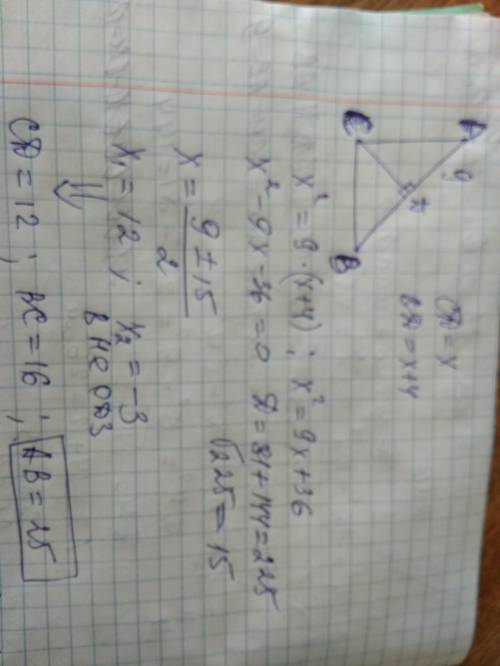 A
9
D
C
B
CD = x
BD = x+4
x² = 9·(x+4) ; x² = 9x+36
x² - 9x - 36 = 0 D = 81+144 = 225
√225 = 15
x = 9 ± 15 / 2
x₁ = 12 ; x₂ = -3
не ОДЗ
CD = 12 ; BC = 16 ; AB = 25